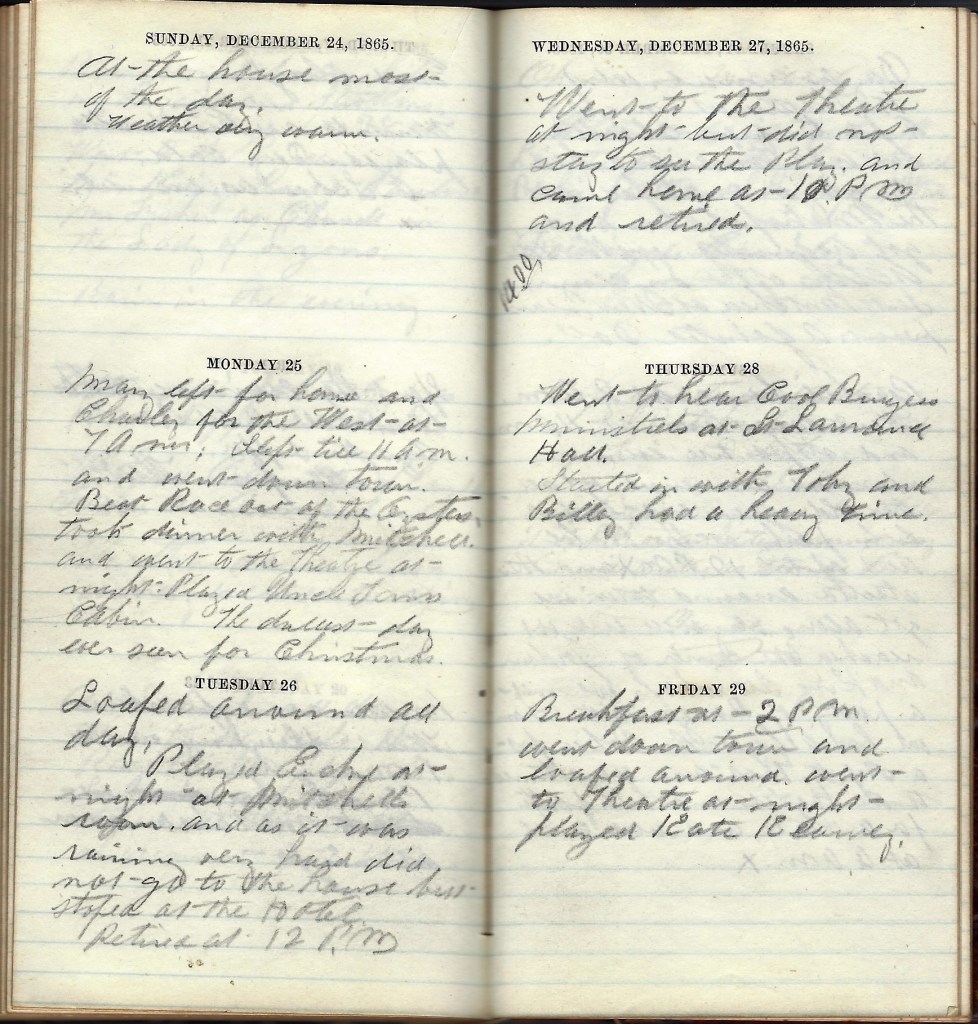 SUNDAY, DECEMBER 24, 1865.
At the house most
of the day.
Weather very warm.
MONDAY 25
May left for home and
Charley for the West at
7 A m; Slept till 11 a.m.
and went down town.
Beat Race out of the Oysters
took dinner with Mitchell.
and went to the Theatre at
night. Played Uncle Toms
Cabin. The dullest day
ever seen for Christmas.
TUESDAY 26
Loafed around all
day.
Played Euchre at
night at Mitchells
room. and as it was
raining very hard did
not go to the house but
stoped at the Hotel.
Retired at 12 P.M
WEDNESDAY, DECEMBER 27, 1865.
Went to the Theatre
at night but did not
stay to see the Play. and
came home at 10 P M
and retired.
THURSDAY 28
Went to hear Cool Burgess
Ministrels at St Lawrence
Hall.
Started in with Toby and
Billy had a heavy time.
FRIDAY 29
Breakfast at 2 P m.
went down town and
loafed around. went
to Theatre at night
played Kate Kearney.